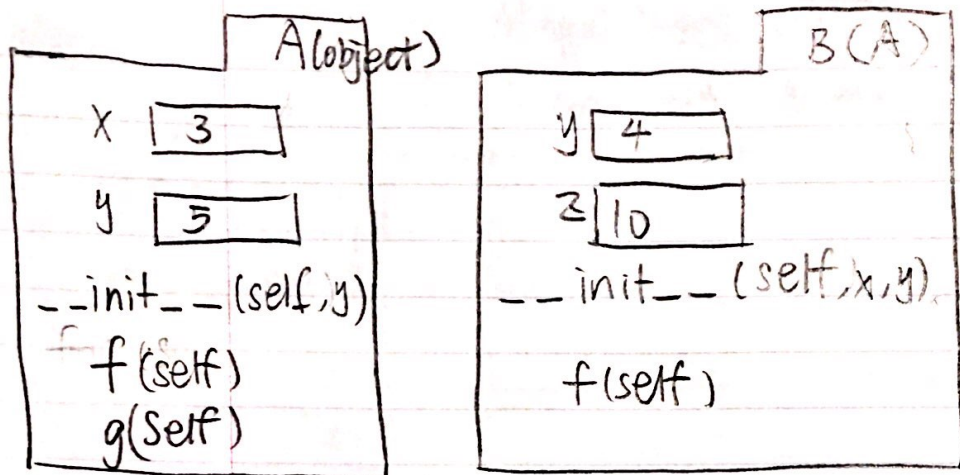 A(object)
x 3
y 5
__init__(self,y)
f(self)
g(self)
B(A)
y 4
z 10
__init__(self,x,y)
f(self)